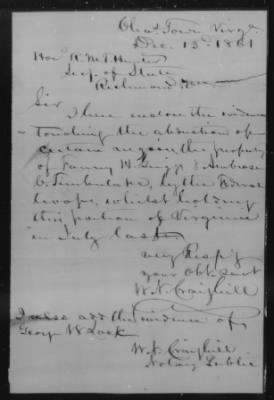 Chas. Town Virga.
Dec. 13th 1861
Hon R. M. T. Hunter
Secy. of State
Richmond
Sir
I here enclose the evidence
touching the abduction of
certain negroes the property
of Fanny H. & Ambrose
C. Timberlake, by the Federal
troops, whilst holding
this portion of Virginia
in July last.
Very Respy
your Obt. Servt
W. N. Craighill
I also add the evidence of
George W Lock
W. N. Craighill
Notary Public